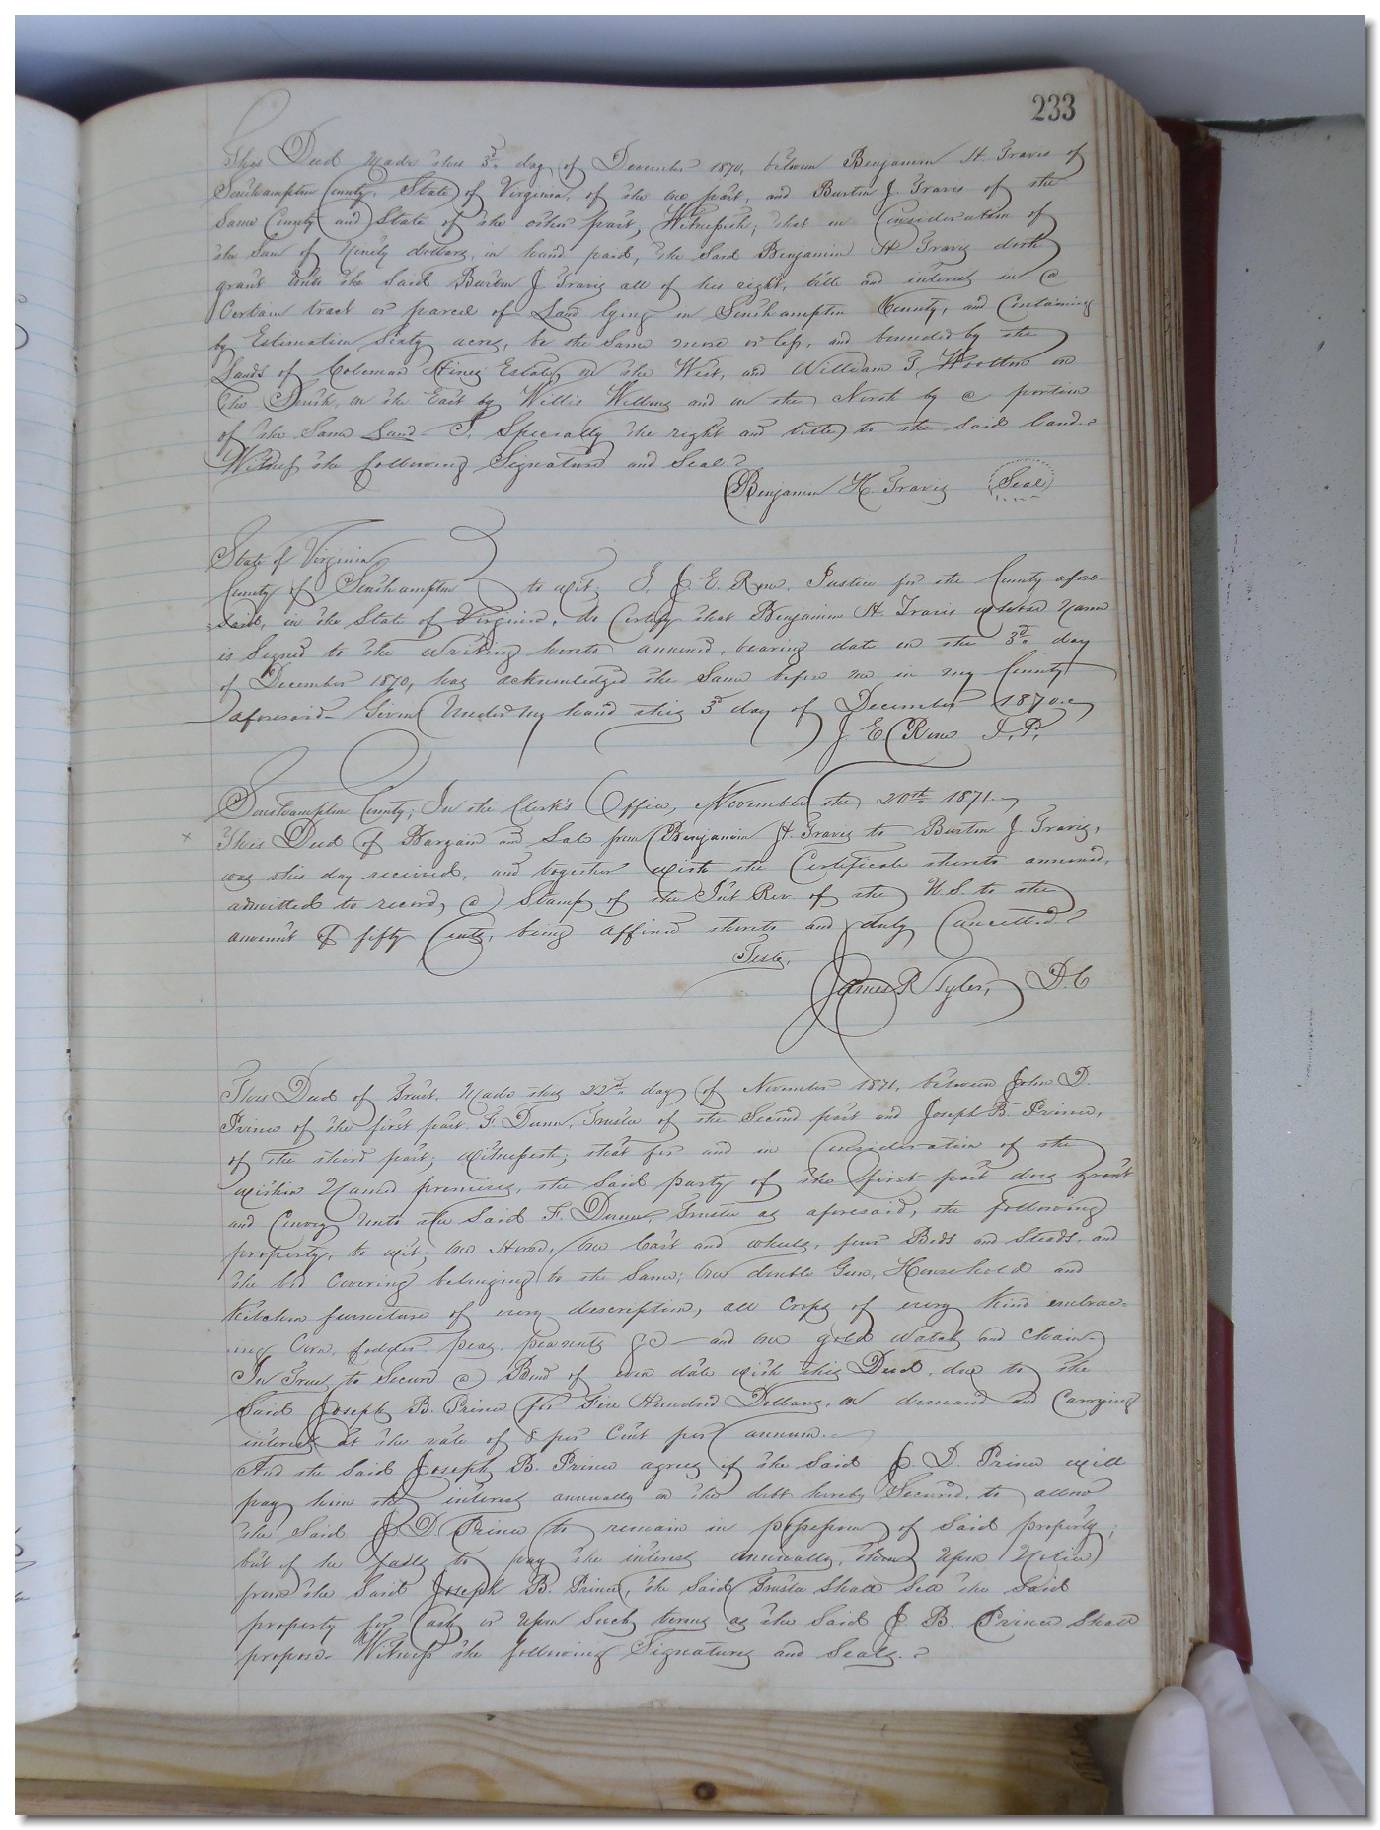 233
This Deed Made this 3d. day of December 1870, between Benjamin H. Travis of
Southampton County, State of Virginia, of the one part, and Burton J. Travis of the
Same County and State of the other part, Witnesseth; that in Consideration of
the Sum of Ninety dollars, in hand paid, the Said Benjamin H Travis doth
grant unto the Said Burton J Travis all of his right, title and interest in a
Certain tract or parcel of Land lying in Southampton County, and Containing
by Estimation Sixty acres, be the Same more or less, and bounded by the
Lands of Coleman Hines Estate, on the West, and William T. Wootton on
The South, on the East by Willis Williams and on the North by a portion
of the Same Land I, Specially the right and title to the Said land.
Witness the following Signature and Seal.
Benjamin H. Travis Seal
State of Virginia
County of Southampton to wit, I, J. E. Rose, Justice for the County afore-
said, in the State of Virginia, do Certify that Benjamin H. Travis whose Name
is Signed to the Writing hereto annexed, bearing date on the 3d. day
of December 1870, has acknowledged the Same before me in my County
aforesaid. Given Under My hand this 3d day of December 1870.
J. E. Rose J. P.
Southampton County; In the Clerk's Office, November the 20th 1871.
x This Deed of Bargain and Sale from Benjamin H. Travis to Burton J Travis,
was this day received, and together with the Certificate thereto annexed,
admitted to record, a Stamp of the Int Rev. of the U.S. to the
amount of fifty Cents, being affixed thereto and duly Cancelled.
Teste,
James R Tyler, D.C
This Deed of Trust, Made this 22d. day of November 1871, between John D.
Prince of the first part F. Dunn, Trustee of the Second part and Joseph B. Prince,
of the third part; witnesseth; that for and in Consideration of the
within Named premises, the Said party of the first part does grant
and Convey Unto the Said F. Dunn, Trustee as aforesaid, the following
property, to wit; One Horse, One Cart and wheels, four Beds and Steads, and
the bed Covering belonging to the Same; One double Gun, Household and
Kitchen furniture of every description, all Crops of every kind embrac-
ing Corn, fodder, peas, peanuts &c and one gold watch and chain
In Trust to Secure a Bond of even date with this Deed, due to the
Said Joseph B. Prince for Five Hundred Dollars, on demand and Carrying
interest at the rate of 8 per Cent per annum.
And the Said Joseph B. Prince agrees if the Said J. D. Prince will
pay him the interest annually on the debt hereby Secured, to allow
the Said J. D Prince to remain in possession of Said property;
but if he fails to pay the interest annually, then Upon Notice
from the Said Joseph B. Prince, the Said Trustee Shall Sell the Said
property for Cash or Upon Such terms as the Said J. B. Prince Shall
propose. Witness the following Signatures and Seals.